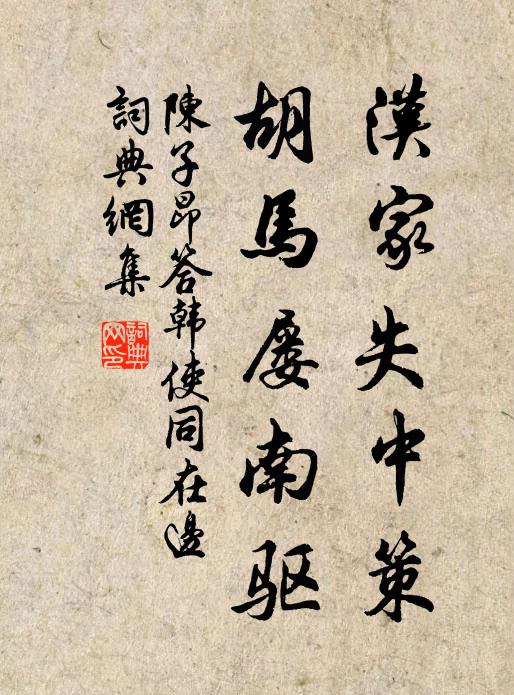 漢家失中策
胡馬屡南驱
陳子昂答韩使同在邊
詞典網集
詞典网印